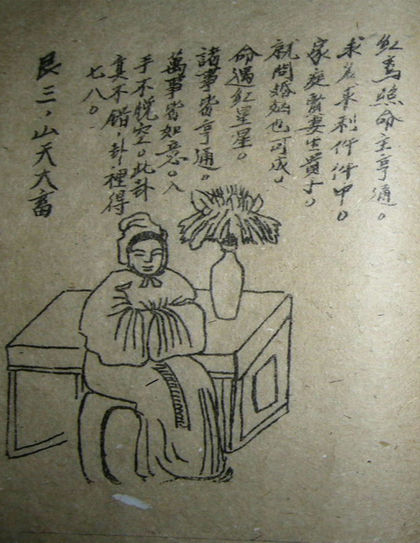 红鸾照命主亨通。
求名求利件件中。
家庭賢妻生貴子。
就問婚姻也可成。
命遇紅星星。
諸事皆亨通。
萬事皆如意。人
手不脱空。此卦
真不錯，卦裡得
七八。
艮三，山天大畜